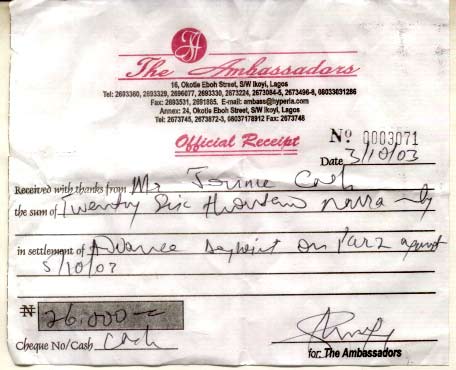 The Ambassadors
16, Okotie Eboh Street, S/W Ikoyi, Lagos
Tel: 2693360, 2693329, 2696077, 2693330, 2673224, 2673084-5, 2673496-8, 08033031286
Fax: 2693531, 2691865. E-mail: ambass@hyperia.com
Annex: 24, Okotie Eboh Street, S/W Ikoyi, Lagos
Tel: 2673745, 2673872-3, 08037178912 Fax: 2673748
Official Receipt
No 0003071
Date 3/10/03
Received with thanks from Mr Cash
the sum of Twenty Six thousand naira only
in settlement of Advance deposit on against
5/10/03
₦ 26,000 —
Cheque No/Cash Cash
for: The Ambassadors